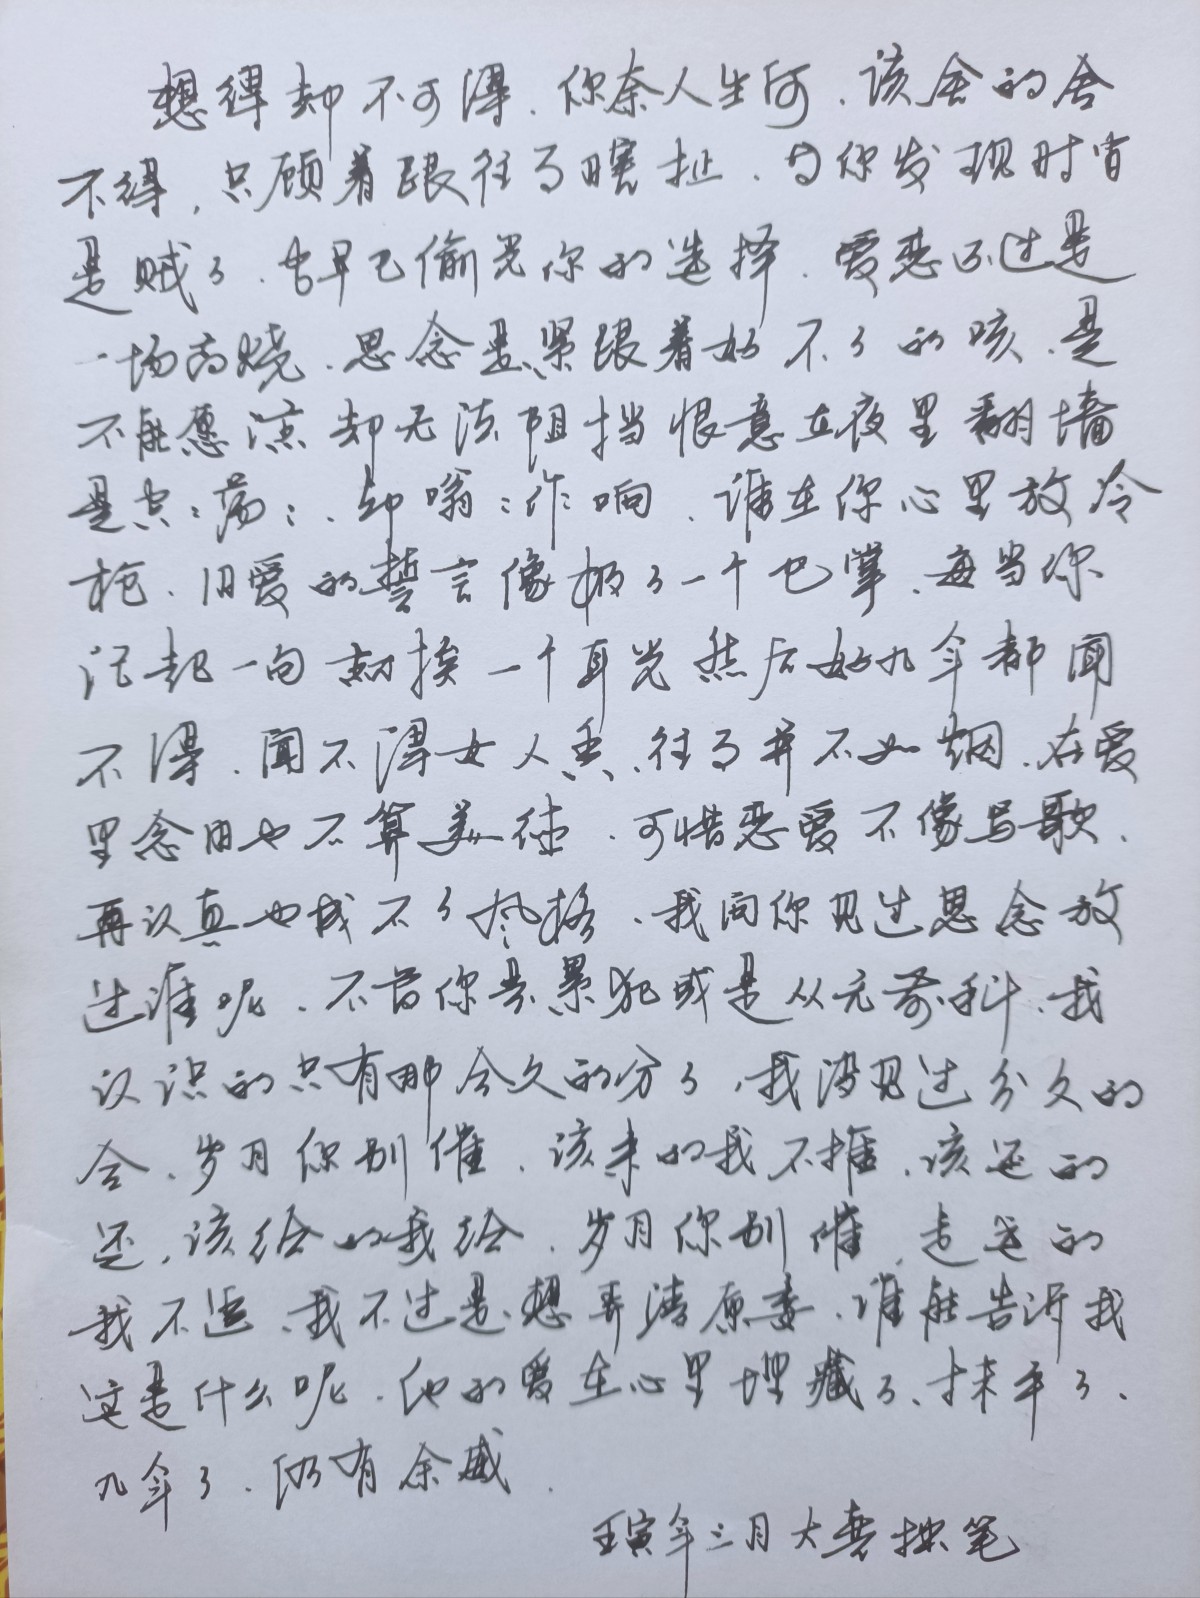 想得却不可得、你奈人生何、该舍的舍
不得、只顾着跟往事瞎扯、等你发现时间
是贼了、它早已偷光你的选择、爱恋不过是
一场高烧、思念是紧跟着好不了的咳、是
不能愿谅却无法阻挡恨意在夜里翻墙
是空空荡荡、却嗡嗡作响、谁在你心里放冷
枪、旧爱的誓言像极了一个巴掌、每当你
记起一句就挨一个耳光然后好几年都闻
不得、闻不得女人香、往事并不如烟、在爱
里念旧也不算美德、可惜恋爱不像写歌、
再认真也成不了风格、我问你见过思念放
过谁呢、不管你是累犯或是从无前科、我
认识的只有那合久的分了、我没见过分久的
合、岁月你别催、该来的我不推、该还的
还、该给的我给、岁月你别催、走远的
我不追、我不过是想弄清原委、谁能告诉我
这是什么呢、他的爱在心里埋藏了、抹平了、
几年了、仍有余威、
壬寅年三月大尧拙笔